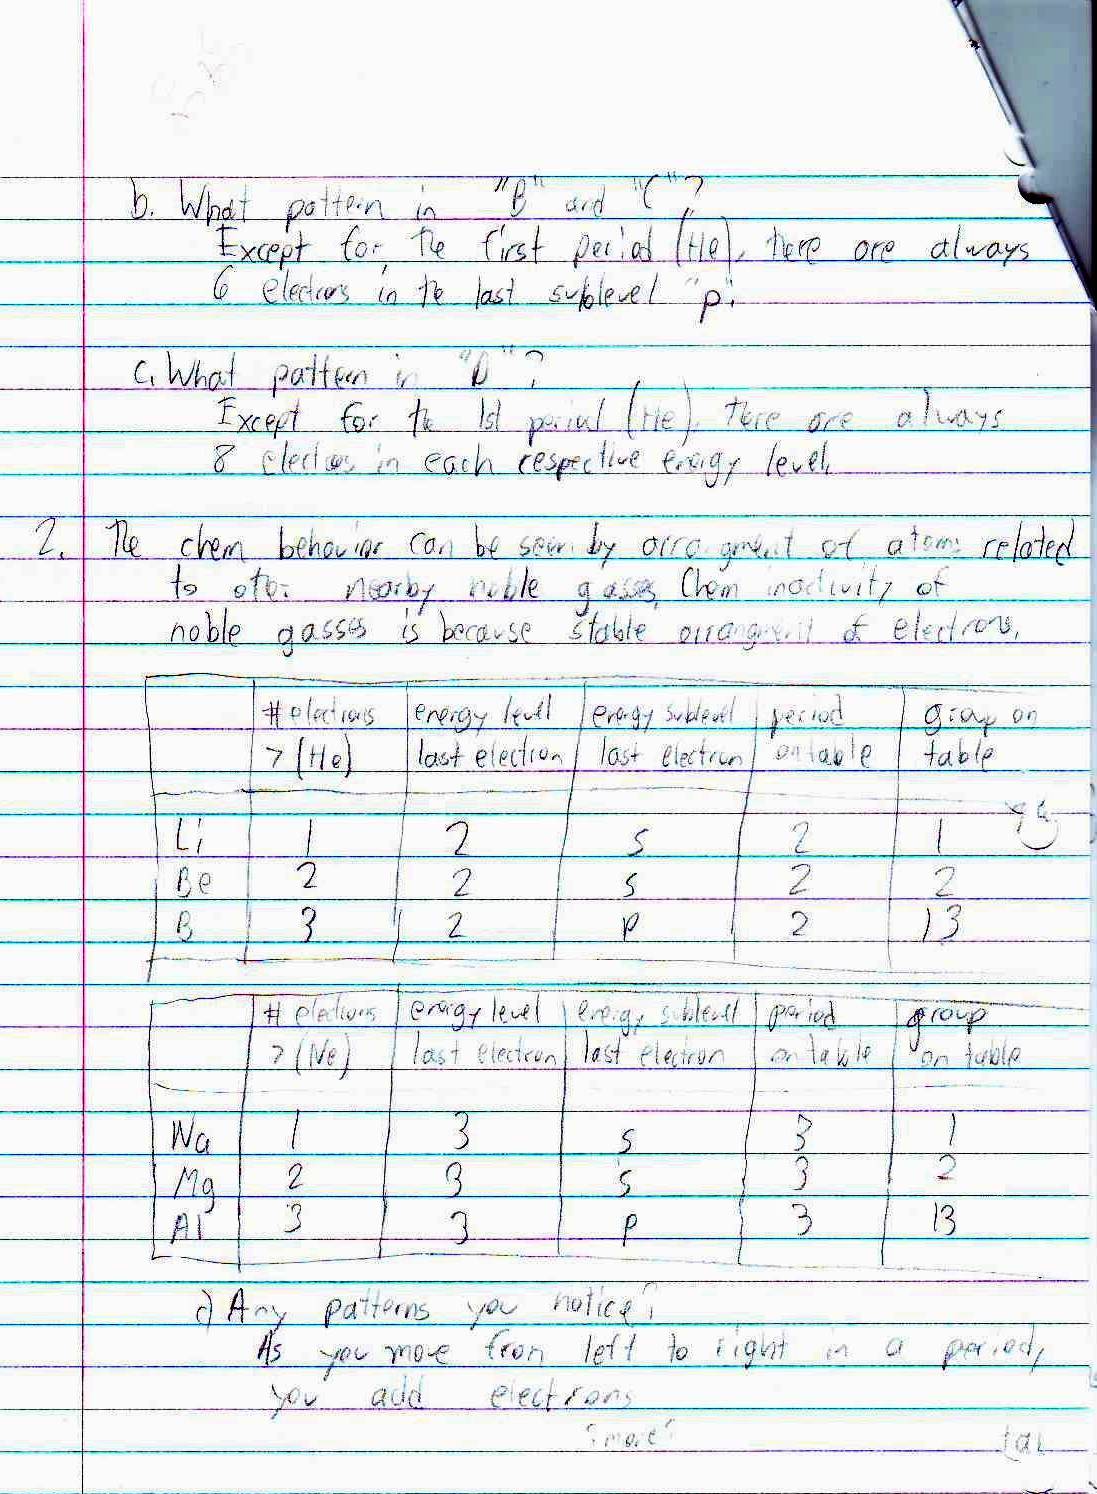 b. What pattern in "B" and "C"?
Except for the first period (He), there are always
6 electrons in the last sublevel "p".
c. What pattern in "D"?
Except for the 1st period (He), there are always
8 electros in each respective energy level.
2. The chem behavior can be seen by arrangment of atoms related
to nearby noble gasses. Chem inactivity of
noble gasses is because stable arrangment of electrons.
# electrons energy level energy sublevel period group on
> (He) last electron last electron on table table
Li 1 2 s 2 1
Be 2 2 s 2 2
B 3 2 p 2 13
# electrons energy level energy sublevel period group
> (Ne) last electron last electron on table on table
Na 1 3 s 3 1
Mg 2 3 s 3 2
Al 3 3 p 3 13
c) Any patterns you notice?
As you move from left to right in a period,
you add electrons
"more"